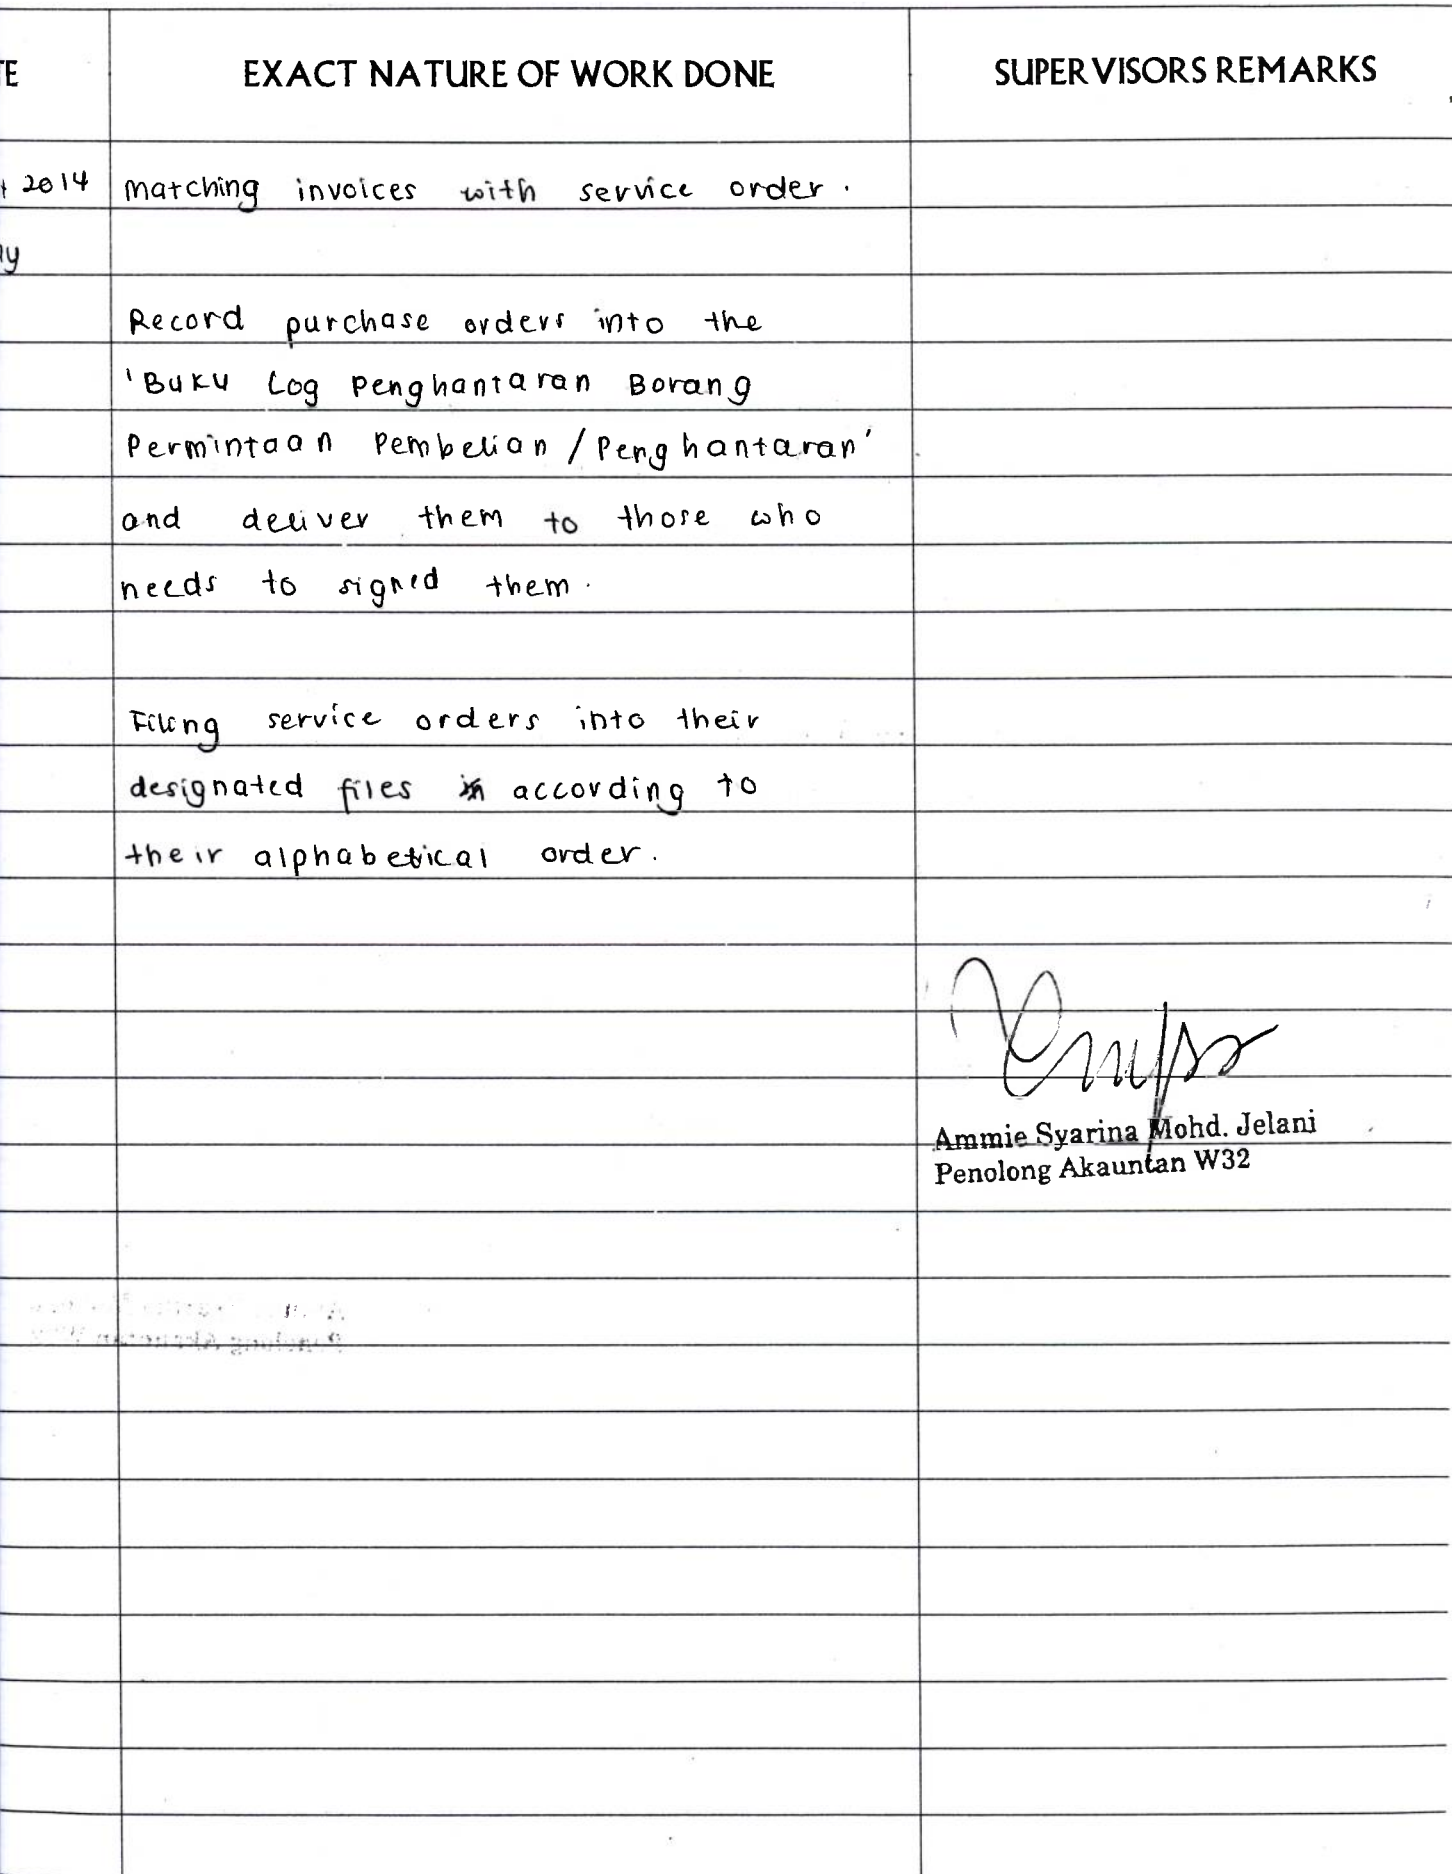 TE EXACT NATURE OF WORK DONE SUPERVISORS REMARKS
2014 matching invoices with service order.
Record purchase orders into the
'Buku Log Penghantaran Borang
Permintaan Pembelian / Penghantaran'
and deliver them to those who
needs to signed them.
Filing service orders into their
designated files according to
their alphabetical order.
Ammie Syarina Mohd. Jelani
Penolong Akauntan W32